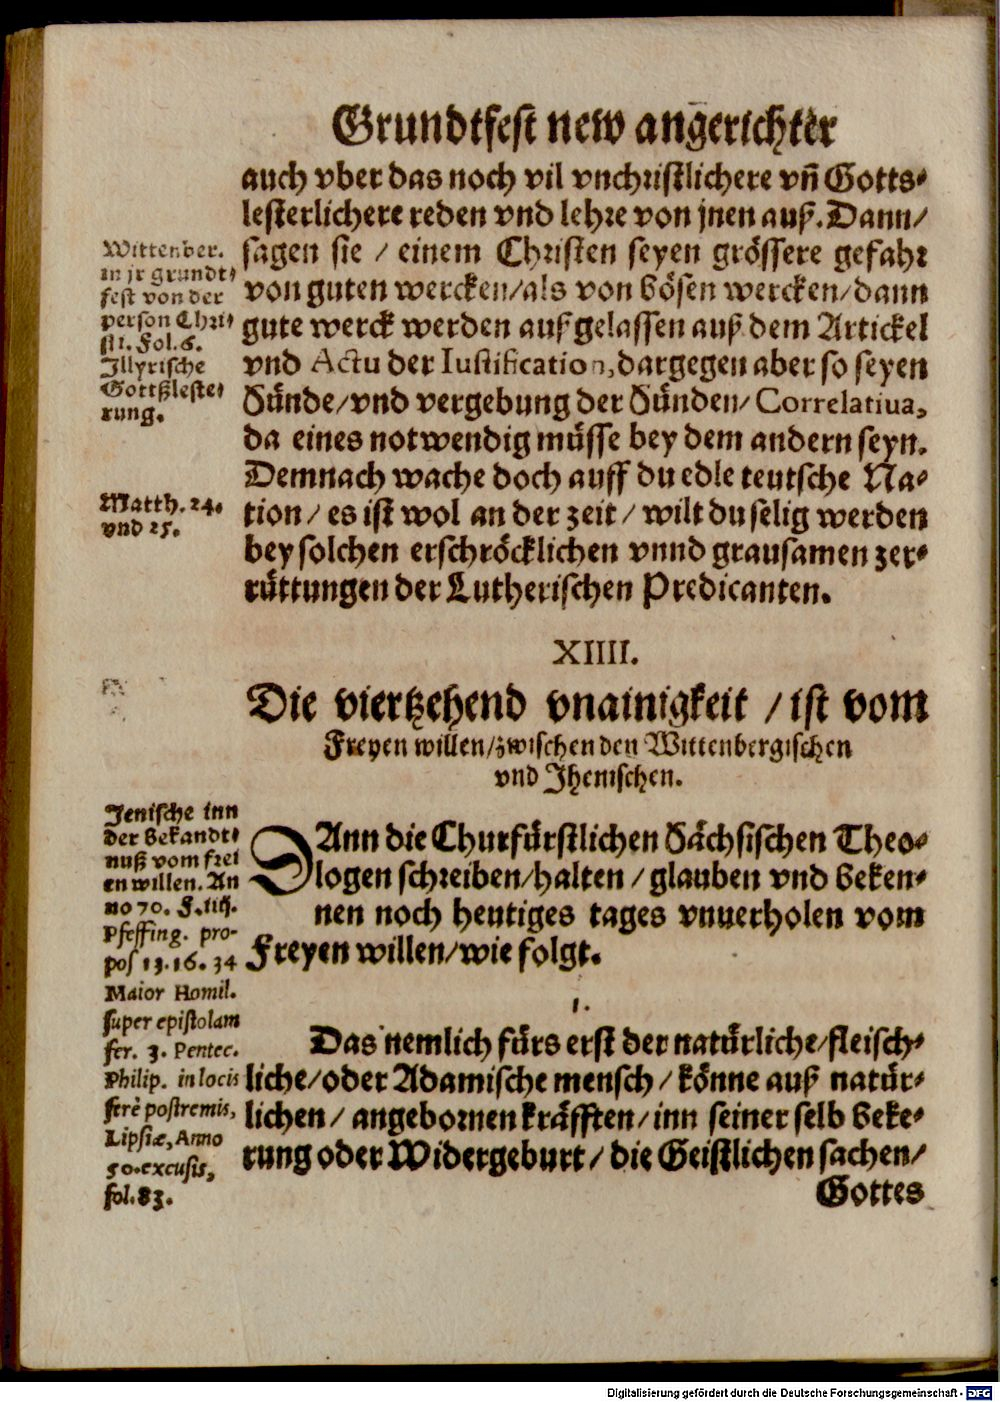 Grundtfest new angerichter
auch vber das noch vil vnchristlichere vn̄ Gotts-
lesterlichere reden vnd lehre von jnen auß. Dann/
sagen sie / einem Christen seyen grössere gefahr
von guten wercken/als von bösen wercken/dann
gute werck werden außgelassen auß dem Artickel
vnd Actu der Iustification, dargegen aber so seyen
Sünde/vnd vergebung der Sünden/ Correlatiua,
da eines notwendig müsse bey dem andern seyn.
Demnach wache doch auff du edle teutsche Na-
tion / es ist wol an der zeit / wilt du selig werden
bey solchen erschröcklichen vnnd grausamen zer-
rüttungen der Lutherischen Predicanten.
Wittenber.
in jr grundt-
fest von der
person Chri-
sti. Fol. 6.
Illyrische
Gottßleste-
rung.
Matth. 24.
vnd 25.
XIIII.
Die viertzehend vnainigkeit / ist vom
Freyen willen/zwischen den Wittenbergischen
vnd Jhenischen.
DAnn die Churfürstlichen Sächsischen Theo-
logen schreiben/halten / glauben vnd beken-
nen noch heutiges tages vnuerholen vom
Freyen willen/wie folgt.
1.
Das nemlich fürs erst der natürliche/fleisch-
liche/oder Adamische mensch / könne auß natür-
lichen / angebornen kräfften / inn seiner selb beke-
rung oder Widergeburt / die Geistlichen sachen /
Gottes
Jenische inn
der bekandt-
nuß vom frei
en willen. An
no 70. F. iiij.
Pfeffing. pro-
pos 13. 16. 34
Maior Homil.
super epistolam
fer. 3. Pentec.
Philip. in locis
ferè postremis,
Lipsiæ, Anno
50. excusis,
fol. 83.
Digitalisierung gefördert durch die Deutsche Forschungsgemeinschaft - DFG